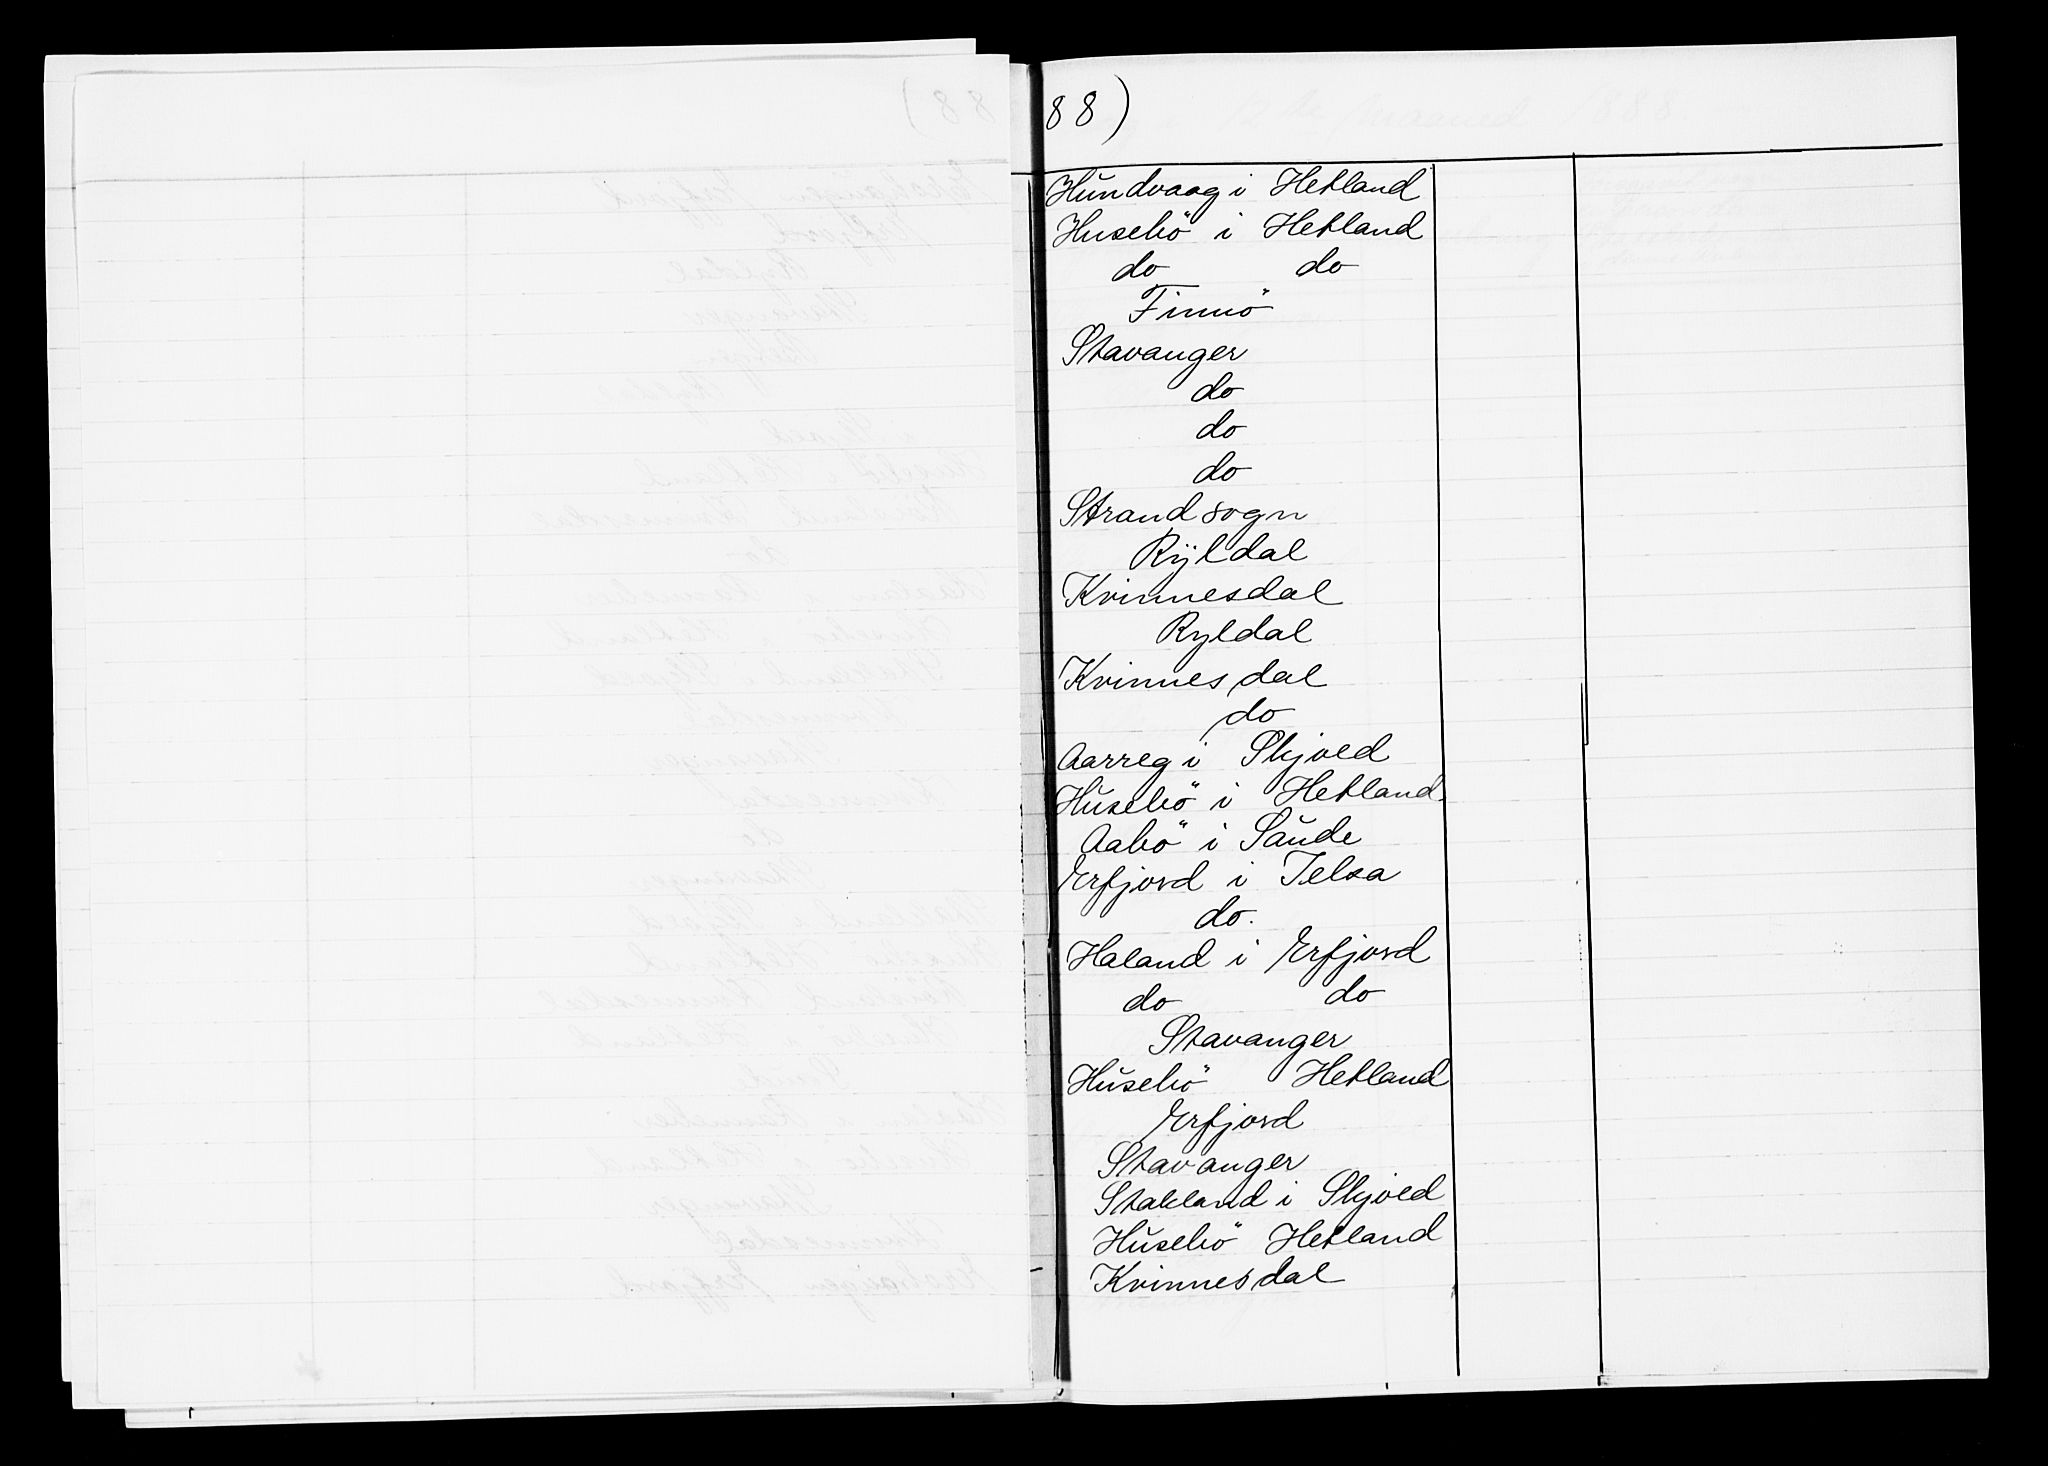 88)
Hundvaag i Hetland
Husebö i Hetland
do do
Finnö
Stavanger
do
do
do
Strandsogn
Rÿldal
Kvinnesdal
Ryldal
Kvinnesdal
do
Aarreg i Skjold
Husebö i Hetland.
Aabö i Saude
Erfjord i Jelsa
do.
Haland i Erfjord
do do
Stavanger
Husebö Hetland
Erfjord
Stavanger
Stakland i Skjold
Husebö Hetland
Kvinnesdal